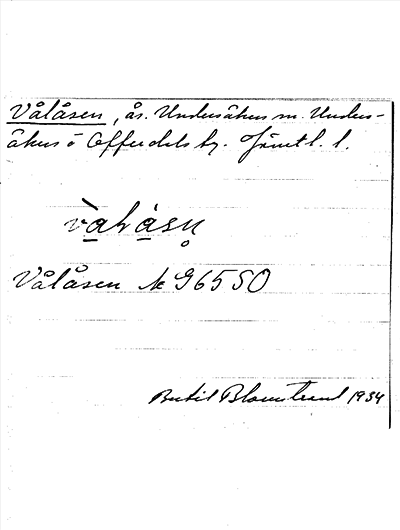 Vålåsen, ås. Undersåkers sn. Unders-
åkers o Offerdals tg. Jämtl. l.
Vålåsen Ä 96550
Bertil Blomstrand 1934